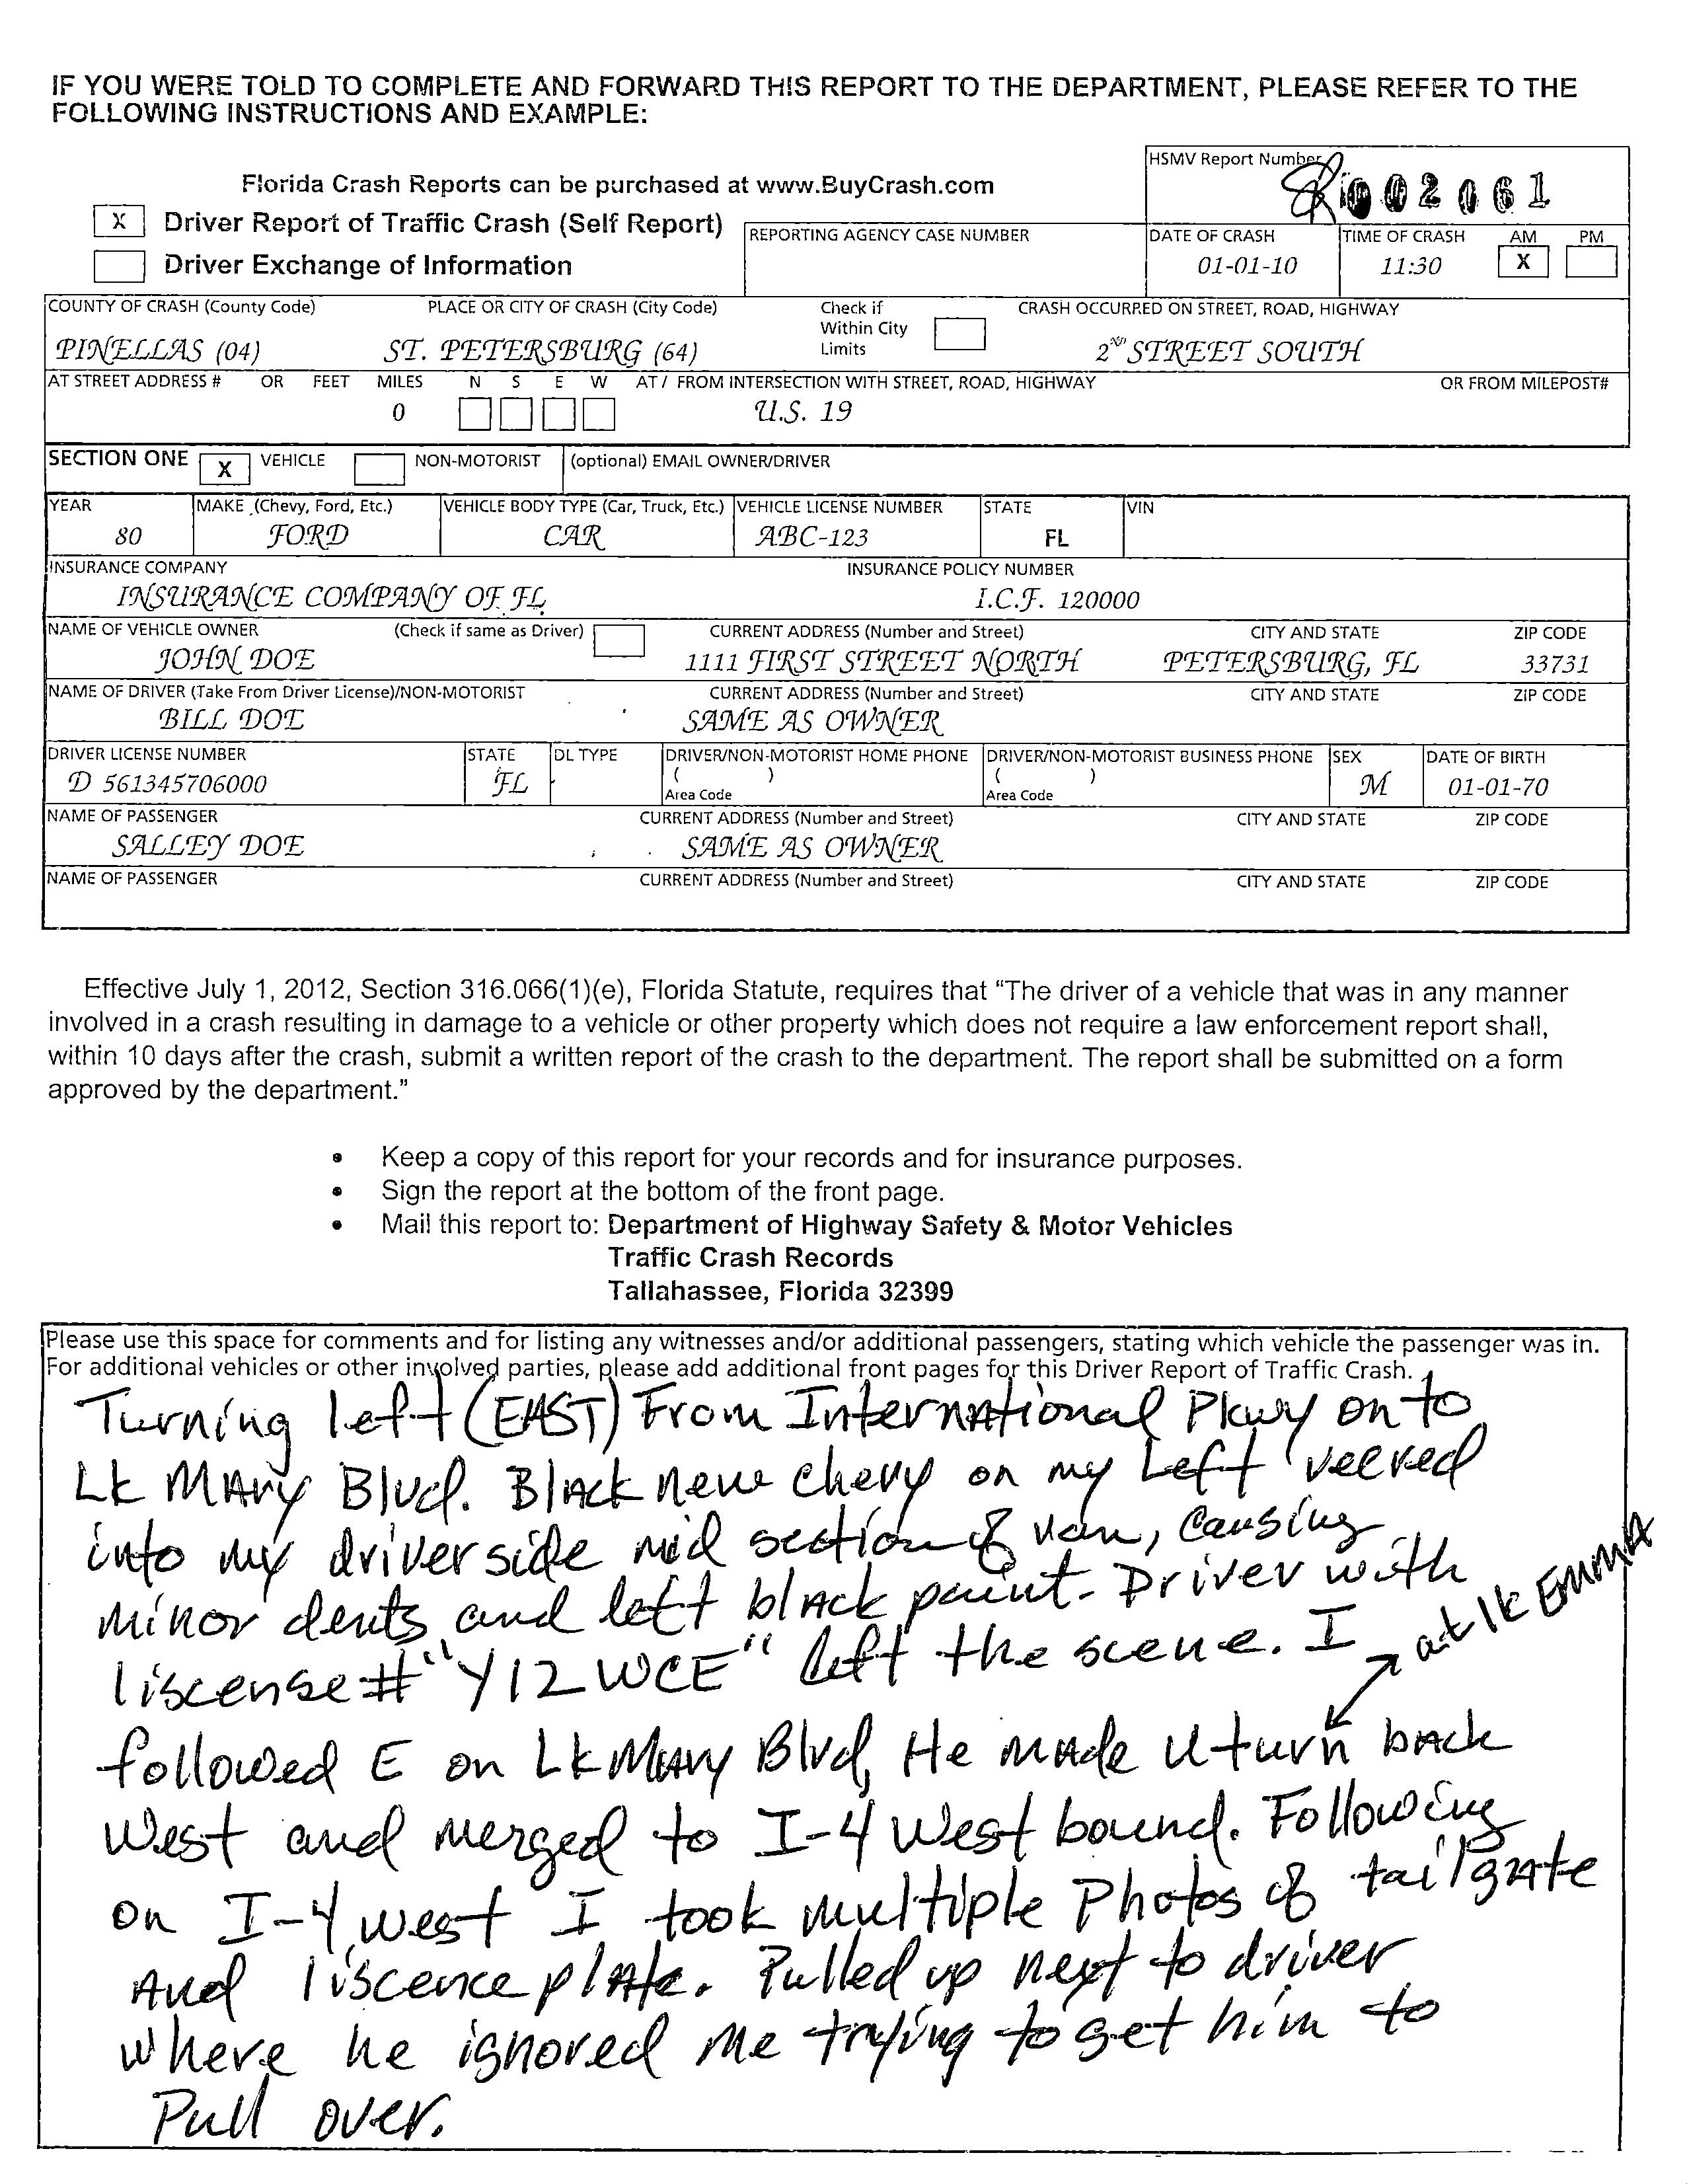 IF YOU WERE TOLD TO COMPLETE AND FORWARD THIS REPORT TO THE DEPARTMENT, PLEASE REFER TO THE
FOLLOWING INSTRUCTIONS AND EXAMPLE:
HSMV Report Number
002061
Florida Crash Reports can be purchased at www.BuyCrash.com
X Driver Report of Traffic Crash (Self Report)
Driver Exchange of Information
REPORTING AGENCY CASE NUMBER
DATE OF CRASH TIME OF CRASH AM PM
01-01-10 11:30 X
COUNTY OF CRASH (County Code) PLACE OR CITY OF CRASH (City Code) Check if Within City Limits CRASH OCCURRED ON STREET, ROAD, HIGHWAY
PINELLAS (04) ST. PETERSBURG (64) 2ND STREET SOUTH
AT STREET ADDRESS # OR FEET MILES N S E W AT / FROM INTERSECTION WITH STREET, ROAD, HIGHWAY OR FROM MILEPOST#
0 U.S. 19
SECTION ONE X VEHICLE NON-MOTORIST (optional) EMAIL OWNER/DRIVER
YEAR MAKE (Chevy, Ford, Etc.) VEHICLE BODY TYPE (Car, Truck, Etc.) VEHICLE LICENSE NUMBER STATE VIN
80 FORD CAR ABC-123 FL
INSURANCE COMPANY INSURANCE POLICY NUMBER
INSURANCE COMPANY OF FL I.C.F. 120000
NAME OF VEHICLE OWNER (Check if same as Driver) CURRENT ADDRESS (Number and Street) CITY AND STATE ZIP CODE
JOHN DOE 1111 FIRST STREET NORTH PETERSBURG, FL 33731
NAME OF DRIVER (Take From Driver License)/NON-MOTORIST CURRENT ADDRESS (Number and Street) CITY AND STATE ZIP CODE
BILL DOE SAME AS OWNER
DRIVER LICENSE NUMBER STATE DL TYPE DRIVER/NON-MOTORIST HOME PHONE DRIVER/NON-MOTORIST BUSINESS PHONE SEX DATE OF BIRTH
D 561345706000 FL ( ) ( ) M 01-01-70
Area Code Area Code
NAME OF PASSENGER CURRENT ADDRESS (Number and Street) CITY AND STATE ZIP CODE
SALLEY DOE SAME AS OWNER
NAME OF PASSENGER CURRENT ADDRESS (Number and Street) CITY AND STATE ZIP CODE
Effective July 1, 2012, Section 316.066(1)(e), Florida Statute, requires that “The driver of a vehicle that was in any manner
involved in a crash resulting in damage to a vehicle or other property which does not require a law enforcement report shall,
within 10 days after the crash, submit a written report of the crash to the department. The report shall be submitted on a form
approved by the department.”
• Keep a copy of this report for your records and for insurance purposes.
• Sign the report at the bottom of the front page.
• Mail this report to: Department of Highway Safety & Motor Vehicles
Traffic Crash Records
Tallahassee, Florida 32399
Please use this space for comments and for listing any witnesses and/or additional passengers, stating which vehicle the passenger was in.
For additional vehicles or other involved parties, please add additional front pages for this Driver Report of Traffic Crash.
Turning left (EAST) From International Pkwy onto
Lk Mary Blvd. Black new chevy on my Left veered
into my driver side mid section of van, causing
minor dents and left black paint. Driver with
liscense # "Y12WCE" left the scene. I
at lk EMMA
followed E on Lk Mary Blvd, He made U turn back
West and merged to I-4 West bound. Following
on I-4 west I took multiple Photos of tailgate
And liscence plate. Pulled up next to driver
where he ignored me trying to get him to
Pull over.